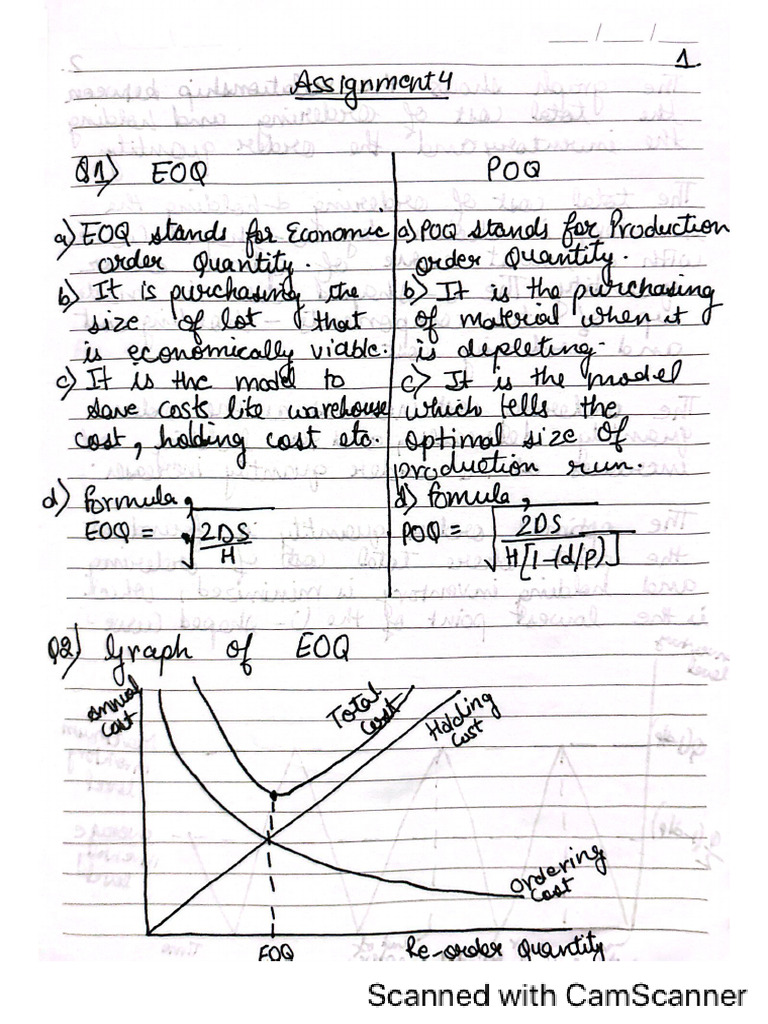 __/__/__
1.
Assignment 4
Q1) EOQ
a) EOQ stands for Economic
order Quantity.
b) It is purchasing the
size of lot that
is economically viable.
c) It is the model to
save costs like warehouse
cost, holding cost etc.
d) formula,
EOQ = √2DS/H
POQ
a) POQ stands for Production
order Quantity.
b) It is the purchasing
of material when it
is depleting.
c) It is the model
which tells the
optimal size of
production run.
d) fomula,
POQ = √2DS/H[1-(d/p)]
Q2) Graph of EOQ
Annual
Cost
Total
cost
Holding
Cost
Ordering
Cost
EOQ
Re-order Quantity
Scanned with CamScanner